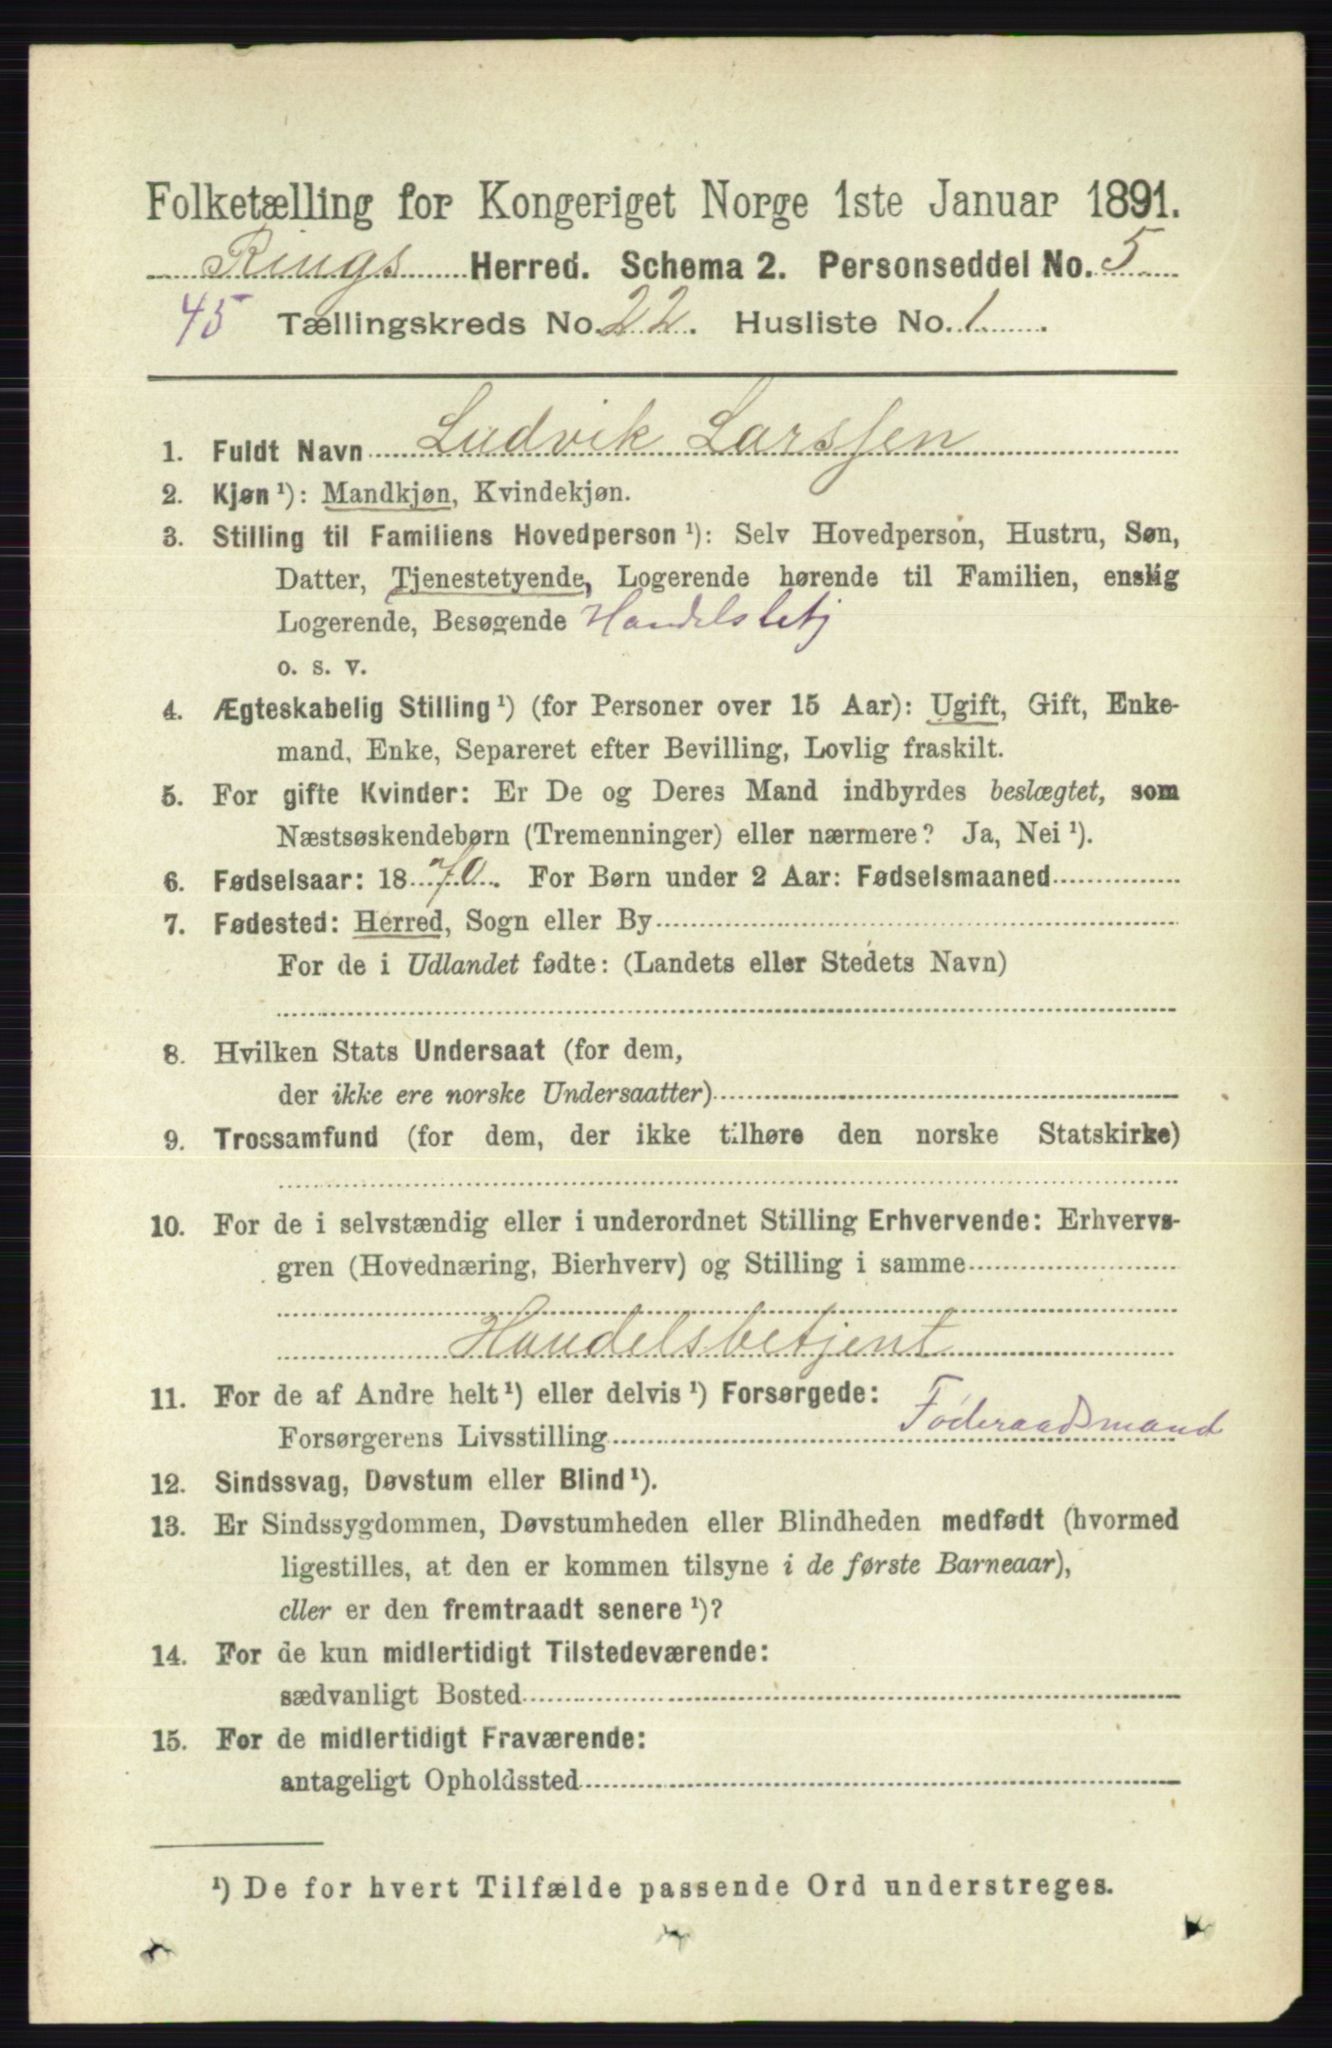 Folketælling for Kongeriget Norge 1ste Januar 1891.
Rings Herred. Schema 2. Personseddel No. 5
45 Tællingskreds No. 22. Husliste No. 1.
1. Fuldt Navn Ludvik Larssen
2. Kjøn ¹): Mandkjøn, Kvindekjøn.
3. Stilling til Familiens Hovedperson ¹): Selv Hovedperson, Hustru, Søn,
Datter, Tjenestetyende, Logerende hørende til Familien, enslig
Logerende, Besøgende Handelsbetj
o. s. v.
4. Ægteskabelig Stilling ¹) (for Personer over 15 Aar): Ugift, Gift, Enke-
mand, Enke, Separeret efter Bevilling, Lovlig fraskilt.
5. For gifte Kvinder: Er De og Deres Mand indbyrdes beslægtet, som
Næstsøskendebørn (Tremenninger) eller nærmere? Ja, Nei ¹).
6. Fødselsaar: 1870. For Børn under 2 Aar: Fødselsmaaned
7. Fødested: Herred, Sogn eller By
For de i Udlandet fødte: (Landets eller Stedets Navn)
8. Hvilken Stats Undersaat (for dem,
der ikke ere norske Undersaatter)
9. Trossamfund (for dem, der ikke tilhøre den norske Statskirke)
10. For de i selvstændig eller i underordnet Stilling Erhvervende: Erhvervs-
gren (Hovednæring, Bierhverv) og Stilling i samme
Handelsbetjent
11. For de af Andre helt ¹) eller delvis ¹) Forsørgede:
Forsørgerens Livsstilling Føderaadsmand
12. Sindssvag, Døvstum eller Blind ¹).
13. Er Sindssygdommen, Døvstumheden eller Blindheden medfødt (hvormed
ligestilles, at den er kommen tilsyne i de første Barneaar),
eller er den fremtraadt senere ¹)?
14. For de kun midlertidigt Tilstedeværende:
sædvanligt Bosted
15. For de midlertidigt Fraværende:
antageligt Opholdssted
¹) De for hvert Tilfælde passende Ord understreges.